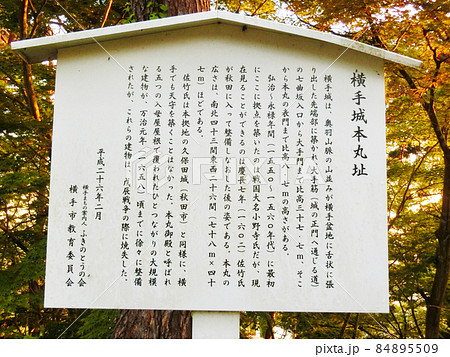 横手城本丸址
横手城は、奥羽山脈の山並みが横手盆地に舌状に張
り出した先端部に築かれ、大手筋（城の正門へ通じる道）
の七曲坂入口から大手門まで比高三十七・七m、そこ
から本丸の表門まで比高
七mの高さがある。
弘治〜永禄年間（一五五〇〜一五六〇年代）に最初
にここに拠点を築いたのは戦国大名小野寺氏だが、現
在見ることができるのは慶長七年（一六〇二）佐竹氏
が秋田に入って整備しなおした後の姿である。本丸の
広さは、南北四十三間東西二十六間（七十八m×四十
七m）ほどである。
佐竹氏は本拠地の久保田城（秋田市）と同様に、横
手でも天守を築くことはなかった。本丸御殿と呼ばれ
る五つの入母屋屋根で覆われたひとつながりの大規模
な建物が、万治元年（一六五八）頃までに徐々に整備
されたが、これらの建物は、戊辰戦争の際に焼失した。
平成二十六年二月
横手まちの案内人・ふきのとうの会
横手市教育委員会
pixta.jp - 84895509